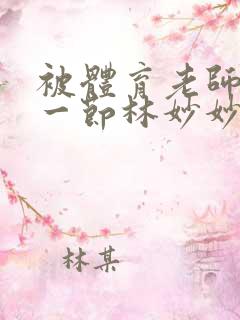 被體育老師
一節林妙妙
林某